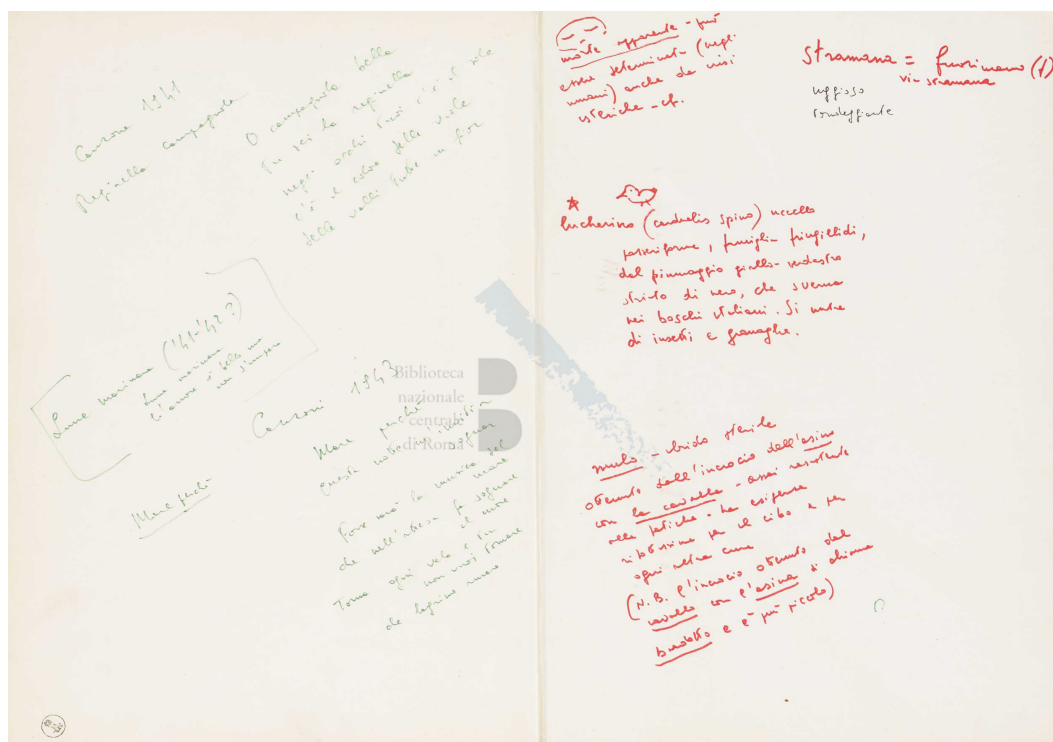 Canzone 1941
Reginella campagnola
O campagnola bella
Tu sei la reginella
negli occhi tuoi c'è il sole
c'è il colore delle viole
delle valli tutte in fior
Luna marinara ('41-'42?)
Luna marinara
l'amore è bello ma
non s'impara
Canzoni 1943
Mare perchè
Mare perchè
questa notte m'inviti a
sognar
Forse sarà la musica del
mare
che nell'attesa fa sognare
il cuore
Torna ogni vela e tu
non vuoi tornare
Biblioteca
nazionale
centrale
di Roma
morte apparente - può
essere determinata (negli
umani) anche da crisi
isteriche - cf.
stramana = fuorimano (f)
via stramana
uggioso
rondeggiante
lucherino (carduelis spino) uccello
passeriforme, famiglia fringillidi,
dal piumaggio giallo-verdastro
striato di nero, che sverna
nei boschi italiani. Si nutre
di insetti e granaglie.
mulo - ibrido sterile
ottenuto dall'incrocio dell'asino
con la cavalla - assai resistente
alle fatiche - ha esigenze
ridottissime per il cibo e per
ogni altra cura
(N.B. l'incrocio ottenuto dal
cavallo con l'asina si chiama
bardotto e è più piccolo)